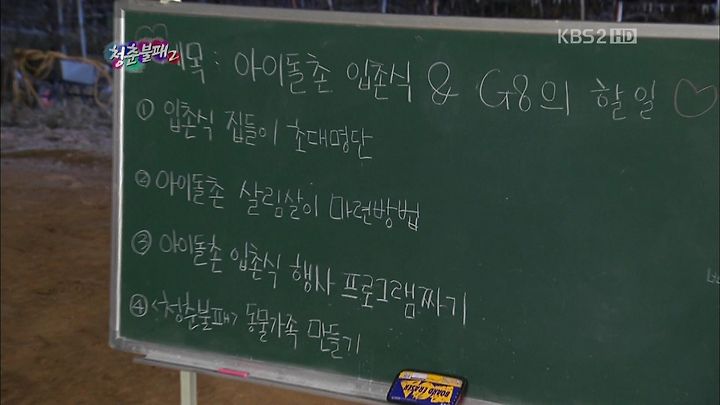 청춘불패2
KBS2 HD
제목 : 아이돌촌 입촌식 & G8의 할 일 ♡
① 입촌식 집들이 초대명단
② 아이돌촌 살림살이 마련방법
③ 아이돌촌 입촌식 행사 프로그램짜기
④ <청춘불패> 동물가족 만들기
BOARD ERASER